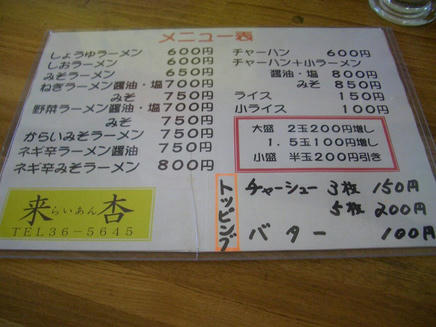 メニュー表
しょうゆラーメン 600円
しおラーメン 600円
みそラーメン 650円
ねぎラーメン醤油・塩 700円
みそ 750円
野菜ラーメン醤油・塩 700円
みそ 750円
からいみそラーメン 750円
ネギ辛ラーメン醤油 750円
ネギ辛みそラーメン 800円
チャーハン 600円
チャーハン+小ラーメン
醤油・塩 800円
みそ 850円
ライス 150円
小ライス 100円
大盛 2玉200円増し
1.5玉100円増し
小盛 半玉200円引き
トッピング
チャーシュー 3枚 150円
5枚 200円
バター 100円
来杏
らいあん
TEL36-5645